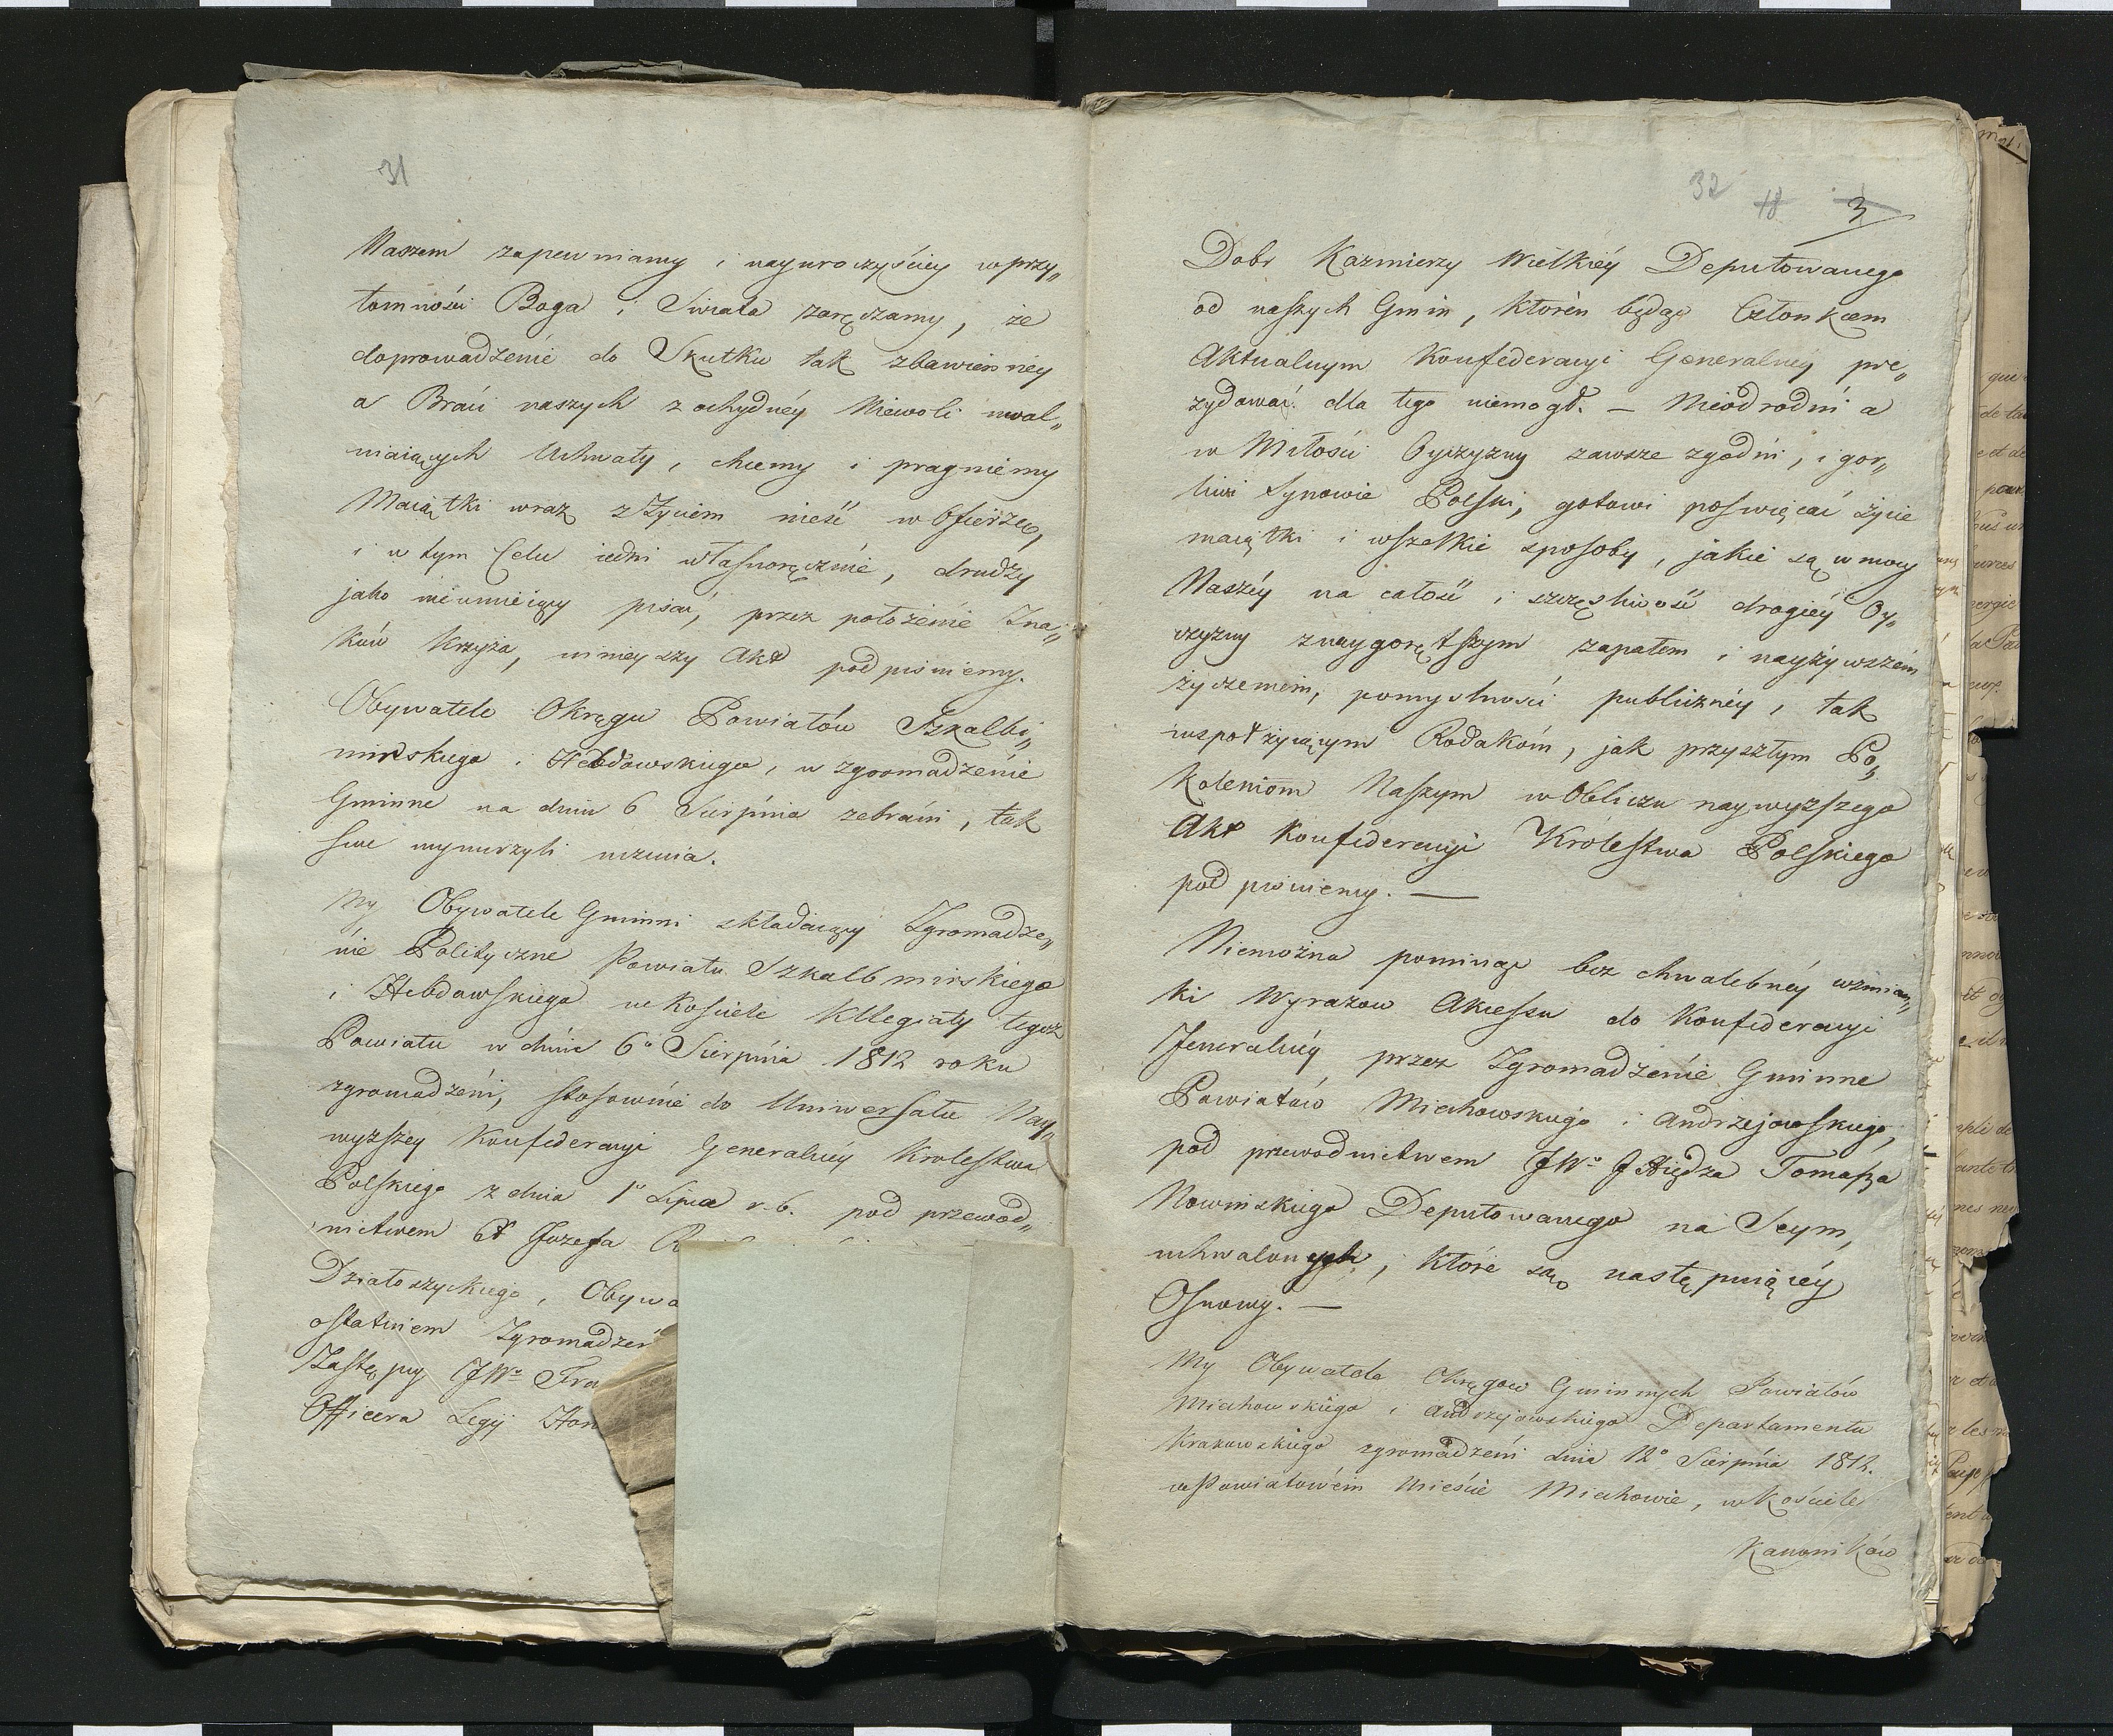 31
Naszem zapewniamy i nayuroczyściey wprzy„
tomności Boga i Swiata zaręczamy, że
doprowadzenie do Skutku tak zbawienney
a Braci naszych z ochydnéy Niewoli uwal„
niaiących Uchwały, chcemy i pragniemy
Maiątki wraz z życiem nieść w Ofierze,
i w tym Celu iedni własnoręcznie, drudzy
jako nieumieiący pisać, przez położenie Zna„
ków krzyża, ninieyszy Akt podpisuiemy.
Obywatele Okręgu Powiatów Szkalbi„
mirskiego i Hebdowskiego, w zgromadzenie
Gminne na dniu 6 Sierpnia zebrani, tak
swe wynurzyli uczucia.
My Obywatele Gminni składaiący Zgromadze„
nie Polityczne Powiatu Szkalbmirskiego
i Hebdowskiego w Kościele Kllegiaty tegoż
Powiatu w dniu 6º Sierpnia 1812 roku
zgromadzeni, stosownie do Uniwersału Nay„
wyższey Konfederacyi Generalnéy Krolestwa
Polskiego z dnia 1º Lipca r. b. pod przewod„
nictwem Jozefa
Działoszyckiego, Obywa
ostatniem Zgromadzen
Zastępcy JWº Fra
Officera Legij Hon
32 18 3
Dobr Kazmierzy Wielkiéy Deputowanego
od naszych Gmin, któren będąc Członkiem
Aktualnym Konfederacyi Generalney pre„
zydować dla tego niemogł. — Nieodrodni a
w Miłości Oyczyzny zawsze zgodni, i gor„
liwi Synowie Polski, gotowi poswięcać życie
maiątki i wszelkie sposoby, jakie są w mocy
Naszéy na całość i szczęsliwość drogiéy Oy„
czyzny z naygorętszym zapałem i nayżywszém
życzeniem, pomyslności publicznéy, tak
wspołżyiącym Rodakóm, jak przyszłym Po„
koleniom Naszym w Obliczu naywyzszego
Akt Konfederacyi Królestwa Polskiego
podpisuiemy. —
Niemożna pominąć bez chwalebnéy wzmian„
ki Wyrazow Akcessu do Konfederacyi
Jeneralnéy przez Zgromadzenie Gminne
Powiatów Miechowskiego i Andrzejowskiego,
pod przewodnictwem JWº Xiędza Tomasza
Nowinskiego Deputowanego na Seym,
uchwalonych, które są następuiącéy
Osnowy. —
My Obywatele Okręgow Gminnych Powiatów
Miechowskiego i Andrzejowskiego Departamentu
Krakowskiego zgromadzeni dnia 12º Sierpnia 1812.
w Powiatowém Mieście Miechowie, w Kościele
Kanoników